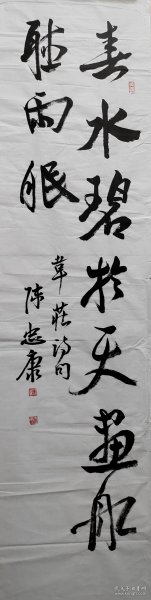 春水碧於天画船
聽雨眠
韋莊詩句
陈忠康